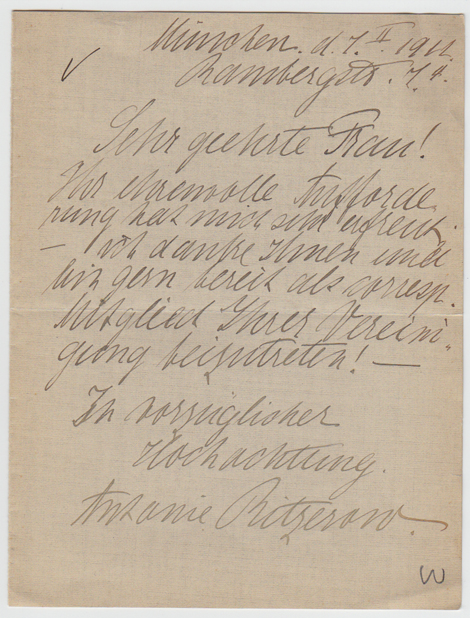 München. d. 7. II. 1911.
Rambergstr. 7.
Sehr geehrte Frau!
Ihr ehrenvolle Aufforde-
rung hat mich sehr erfreut
— ich danke Ihnen und
bin gern bereit als corresp.
Mitglied Ihrer Vereini-
gung beizutreten! —
In vorzüglicher
Hochachtung.
Antonie Ritzerow.
W